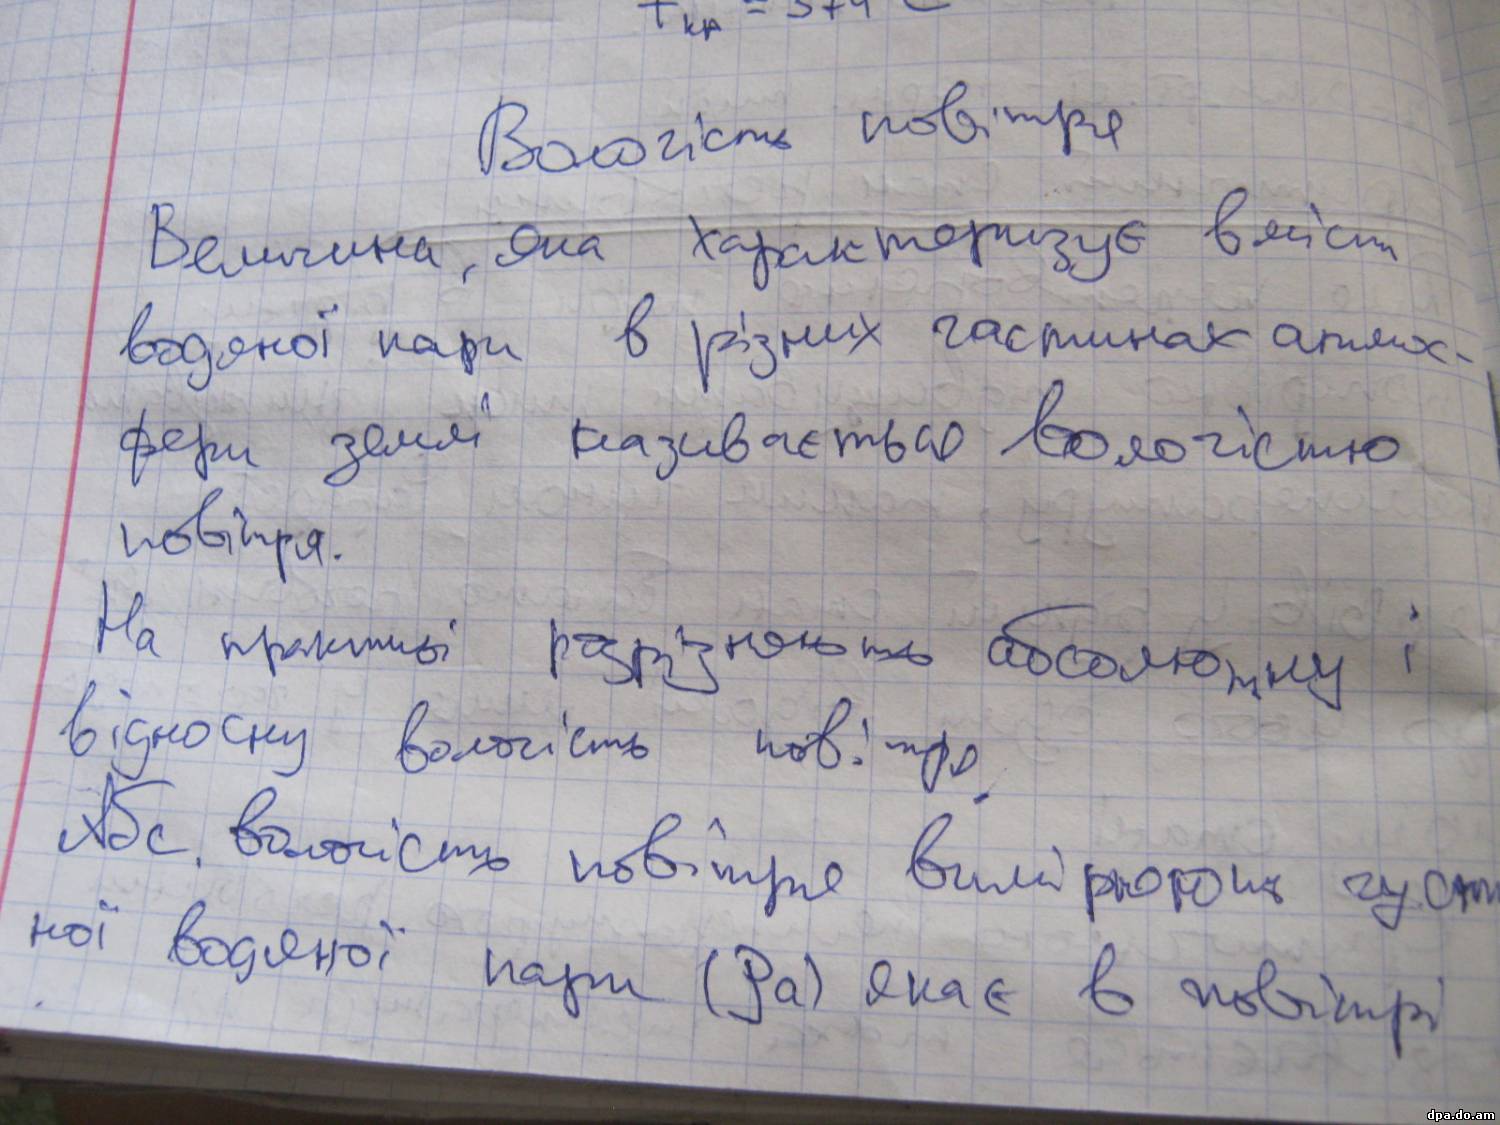 Tкр = 374 C
Вологість повітря
Величина, яка характеризує вміст
водяної пари в різних частинах атмос-
фери землі називається вологістю
повітря.
На практиці розрізняють абсолютну і
відносну вологість повітря.
Абс. вологість повітря вимірюють густ
ної водяної пари (ρа) яка є в повітрі
dpa.do.am